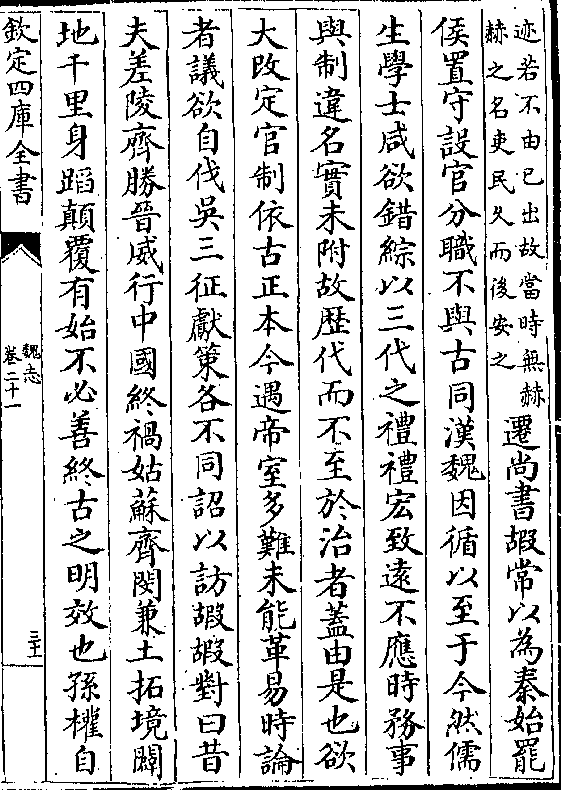 迹若不由已出故當時無赫
赫之名吏民久而後安之
遷尚書嘏常以為秦始罷
侯置守設官分職不與古同漢魏因循以至于今然儒
生學士咸欲錯綜以三代之禮禮宏致逺不應時務事
與制違名實未附故歴代而不至於治者蓋由是也欲
大改定官制依古正本今遇帝室多難未能革易時論
者議欲自伐吳三征獻策各不同詔以訪嘏嘏對曰昔
夫差陵齊勝晉威行中國終禍姑蘇齊閔兼土拓境闢
地千里身蹈顛覆有始不必善終古之明效也孫權自
欽定四庫全書
魏志
卷二十一
三十